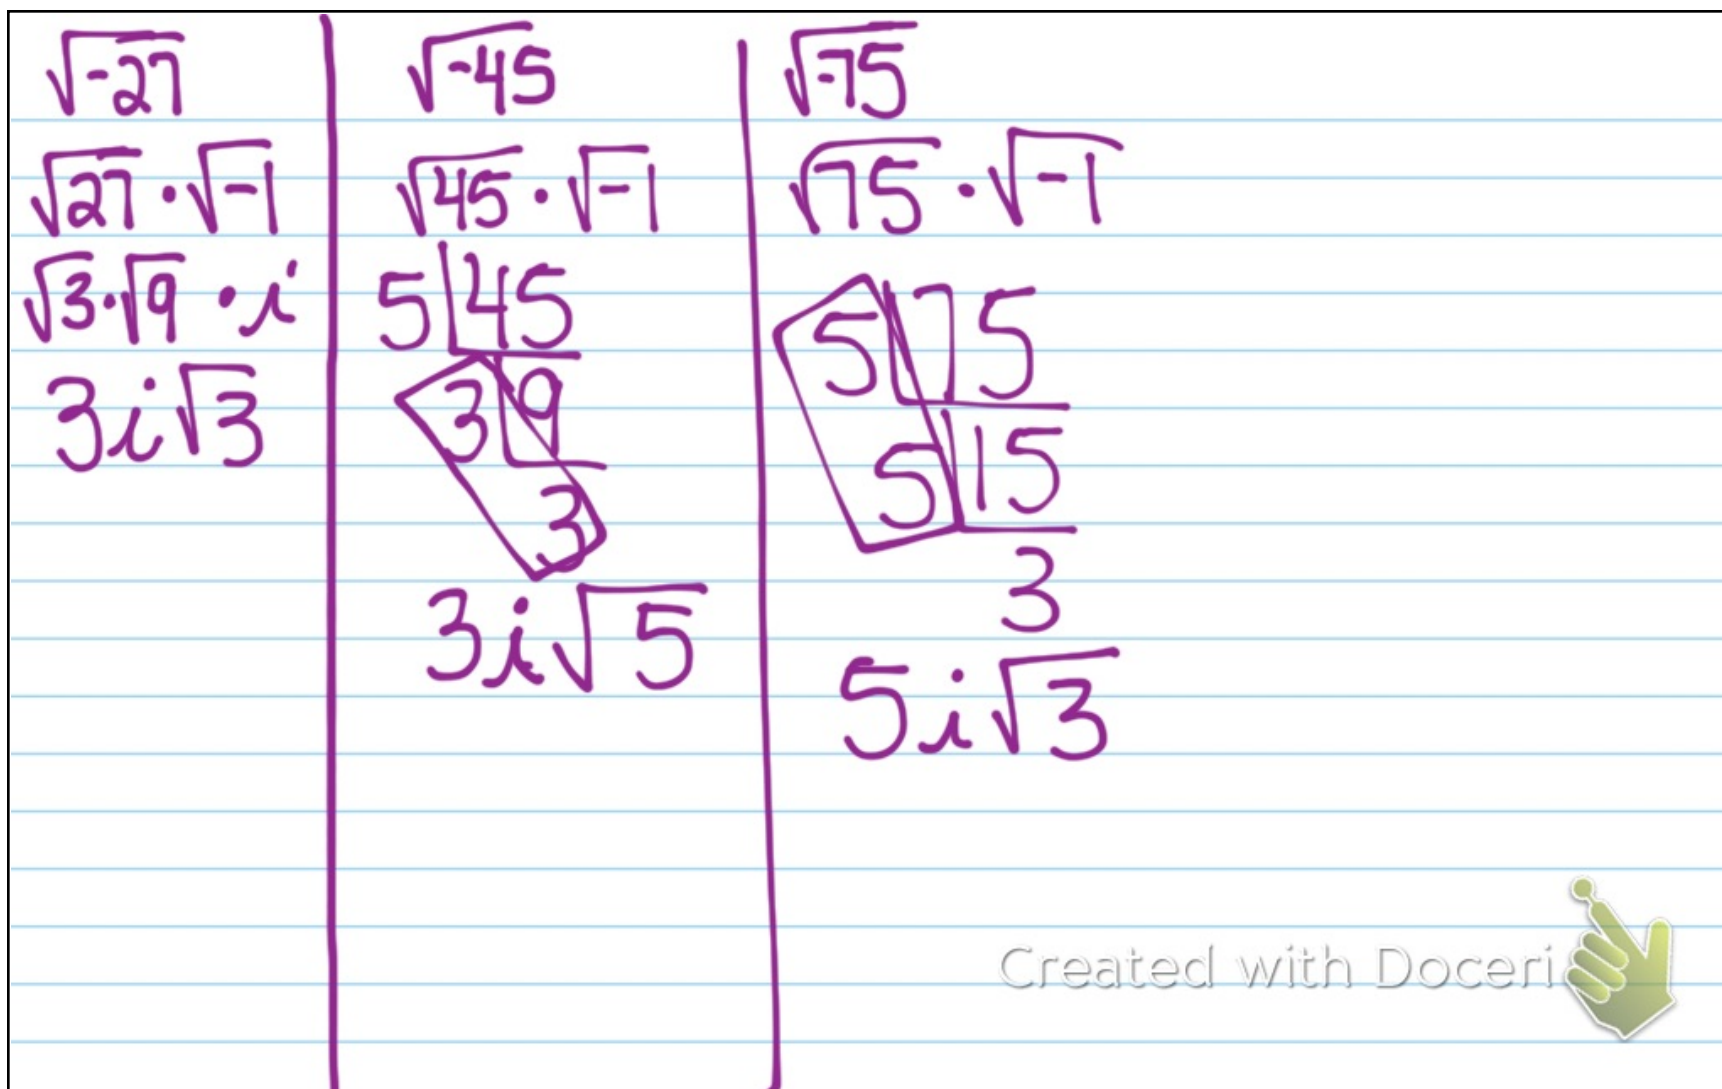 √-27
√27 · √-1
√3 · √9 · i
3i√3
√-45
√45 · √-1
5 45
3 9
3
3i√5
√-75
√75 · √-1
5 75
5 15
3
5i√3
Created with Doceri